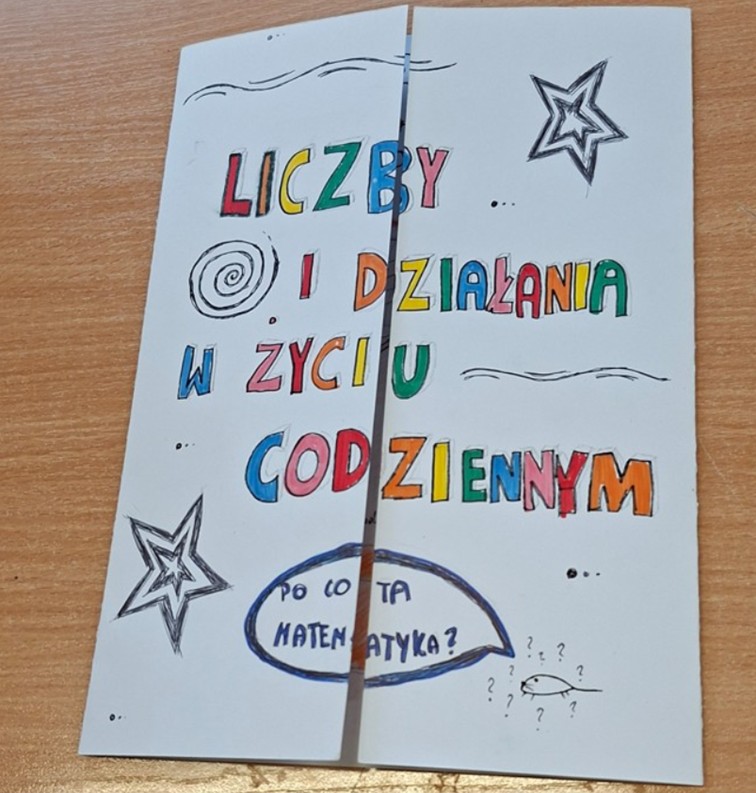 LICZBY
I DZIAŁANIA
W ŻYCIU
CODZIENNYM
PO CO TA
MATEMATYKA?
? ? ?
? ?
? ?
? ?